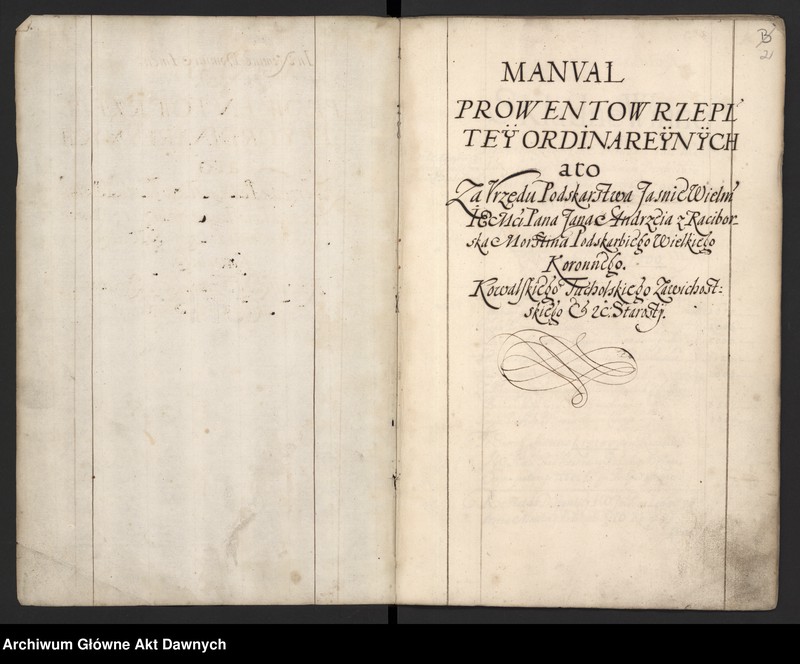 B
21
MANVAL
PROWENTOW RZEPL
TEŸ ORDINAREŸNŸCH
ato
Za Vrzędu Podskarstwa Jasnie Wielm
IE Mći Pana Jana Andrzeia z Racibor-
ska Morstina Podskarbiego Wielkiego
Koronnego.
Kowalskiego Tucholskiego Zawichost:
skiego &c. Starosty.
Archiwum Główne Akt Dawnych